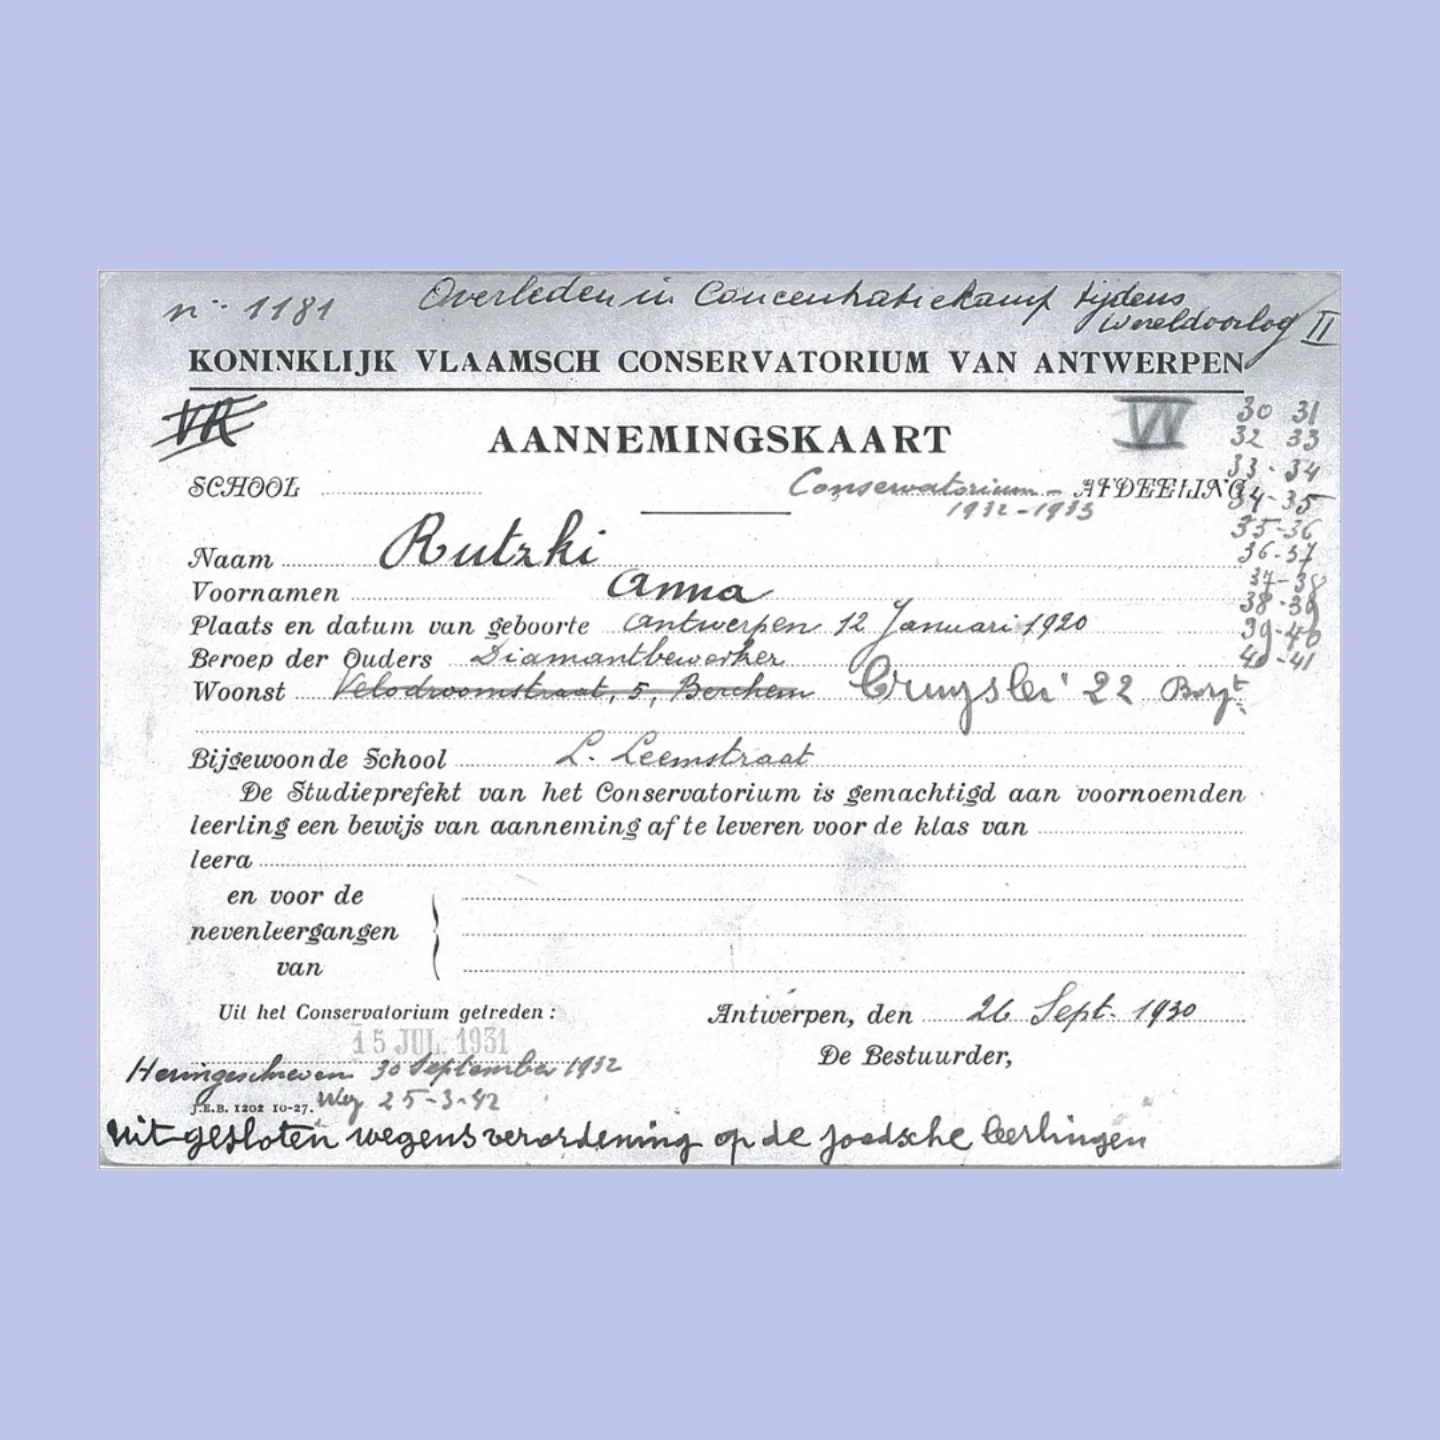 nº 1181 Overleden in Concentratiekamp tijdens
Wereldoorlog II
KONINKLIJK VLAAMSCH CONSERVATORIUM VAN ANTWERPEN
AANNEMINGSKAART
SCHOOL Conservatorium - AFDEELING
1932-1933
30 31
32 33
33-34
34-35
35-36
36-37
37-38
38-39
39-40
40-41
Naam Rutzki
Voornamen Anna
Plaats en datum van geboorte Antwerpen 12 Januari 1920
Beroep der Ouders Diamantbewerker
Woonst Velodroomstraat, 5, Berchem Cruyslei 22 Borgt
Bijgewoonde School L. Leemstraat
De Studieprefekt van het Conservatorium is gemachtigd aan voornoemden
leerling een bewijs van aanneming af te leveren voor de klas van
leera
en voor de
nevenleergangen
van
Uit het Conservatorium getreden :
15 JUL. 1931
Antwerpen, den 26 Sept. 1930
De Bestuurder,
Heringeschreven 30 September 1932
J.E.B. 1202 10-27. Weg 25-3-42
uitgesloten wegens verordening op de joodsche leerlingen